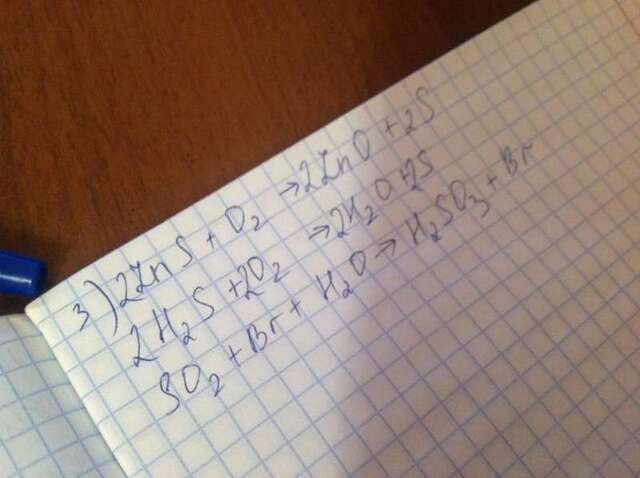 3) 2ZnS + O₂ → 2ZnO + 2S
2H₂S + 2O₂ → 2H₂O + 2S
SO₂ + Br + H₂O → H₂SO₃ + Br